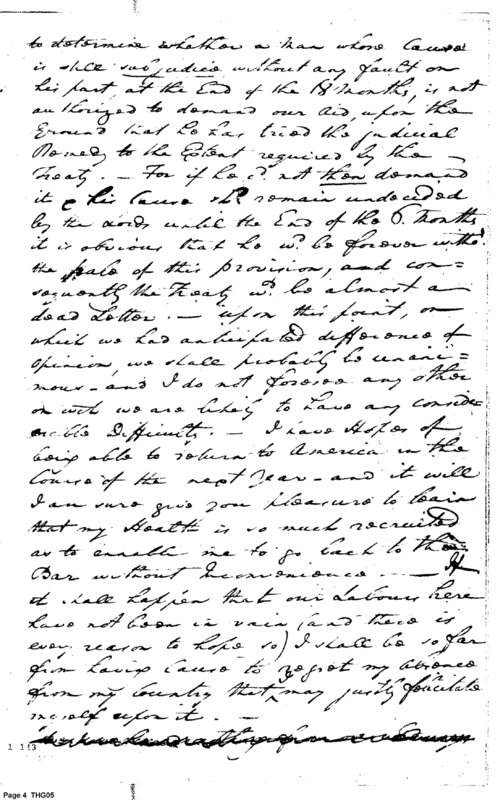 to determine whether a Man whose Cause
is still sub judice without any fault on
his part, at the End of the 18 Months, is not
authorized to demand our aid, upon the
Ground that he has tried the judicial
Remedy to the Extent required by the
Treaty. — For if he cd. not then demand
it & his Cause shd. remain undecided
by the Lords until the End of the Months
it is obvious that he wd. be forever witht.
the pale of this provision, and con=
sequently the Treaty wd. be almost a
dead Letter. — upon this point, on
which we had anticipated difference of
opinion, we shall probably be unani=
mous — and I do not foresee any other
on wch we are likely to have any consid
erable Difficulty. — I have Hopes of
being able to return to America in the
Course of the next Year — and it will
I am sure give you pleasure to learn
that my Health is so much recruited
as to enable me to go back to the
Bar without Inconvenience — If
it shall happen that our Labours here
have not been in vain (and there is
every reason to hope so) I shall be so far
from having Cause to regret my absence
from my Country that may justly felicitate
myself upon it. —
1 143
Page 4 THG05